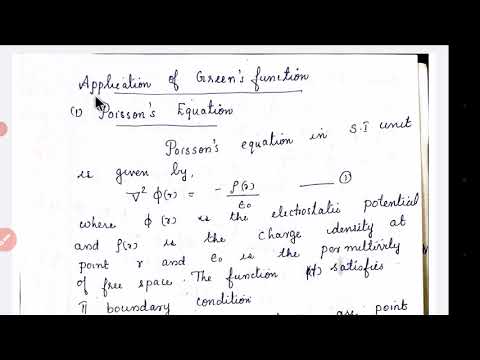 Application of Green's function
(1) Poisson's Equation
Poisson's equation in S.I unit
is given by,
∇² ϕ(r) = - ρ(r)/ϵ₀ —— ①
where ϕ(r) is the electrostatic potential
and ρ(r) is the charge density at
point r and ϵ₀ is the permittivity
of free space. The function satisfies
boundary condition
are point